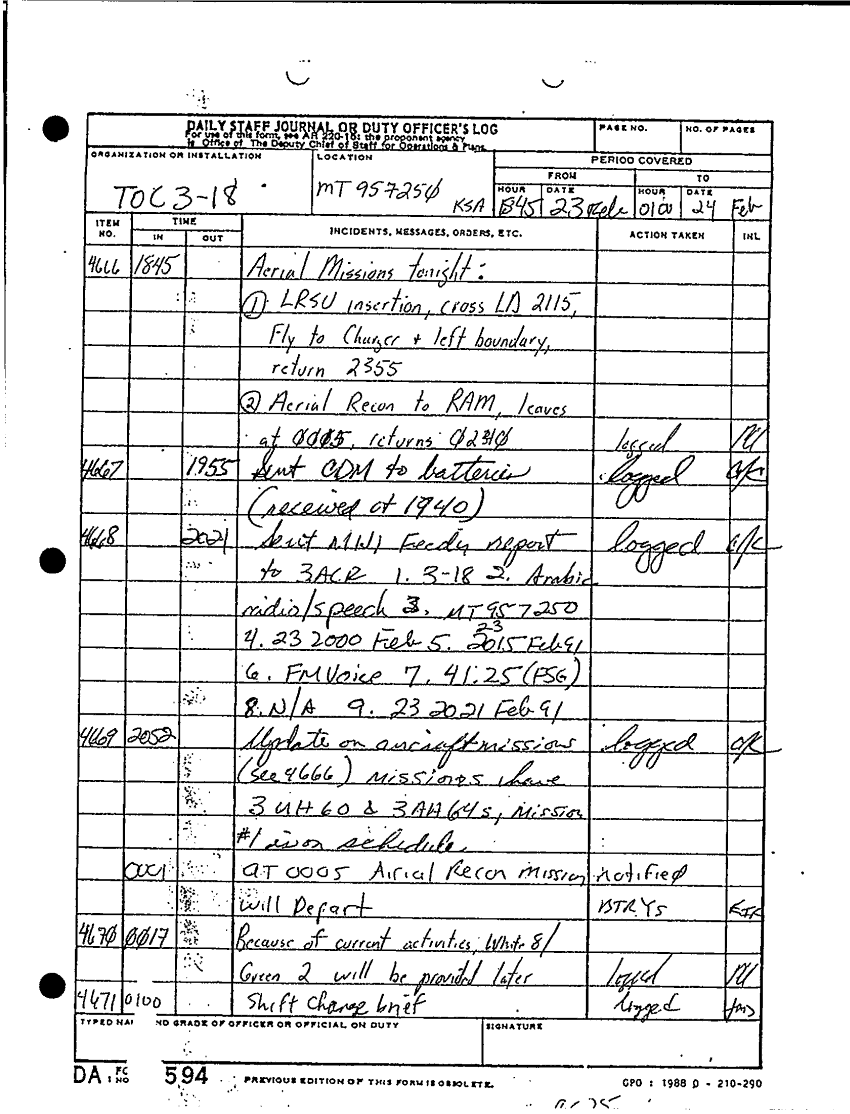 DAILY STAFF JOURNAL OR DUTY OFFICER'S LOG
For use of this form, see AR 220-15; the proponent agency
is Office of The Deputy Chief of Staff for Operations & Plans.
PAGE NO.
NO. OF PAGES
ORGANIZATION OR INSTALLATION
TOC 3-18
LOCATION
MT 957250
KSA
PERIOD COVERED
FROM
TO
HOUR DATE HOUR DATE
1845 23 Feb 0100 24 Feb
ITEM NO.
TIME
IN OUT
INCIDENTS, MESSAGES, ORDERS, ETC.
ACTION TAKEN
INL
4666 1845 Aerial Missions tonight:
① LRSU insertion, cross LD 2115,
Fly to Charger + left boundary,
return 2355
② Aerial Recon to RAM, leaves
at 0005, returns 0230 logged
4667 1955 Sent CDM to batteries logged
(received at 1940)
4668 2021 Sent MIJI Feeder report logged
to 3ACR 1. 3-18 2. Arabic
radio/speech 3. MT957250
4. 23 2000 Feb 5. 23 2015 Feb 91
6. FM Voice 7. 41.25 (FSG)
8. N/A 9. 23 2021 Feb 91
4669 2052 Update on aircraft missions logged
(see 4666) missions have
3 UH60 & 3 AH64s, Mission
#1 is on schedule.
0001 at 0005 Airial Recon mission notified
will Depart BTRYS
4670 0017 Because of current activities, White 8/
Green 2 will be provided later logged
4671 0100 Shift Change brief logged
TYPED NA ND GRADE OF OFFICER OR OFFICIAL ON DUTY
SIGNATURE
DA FO NO 594
PREVIOUS EDITION OF THIS FORM IS OBSOLETE.
GPO : 1988 0 - 210-290